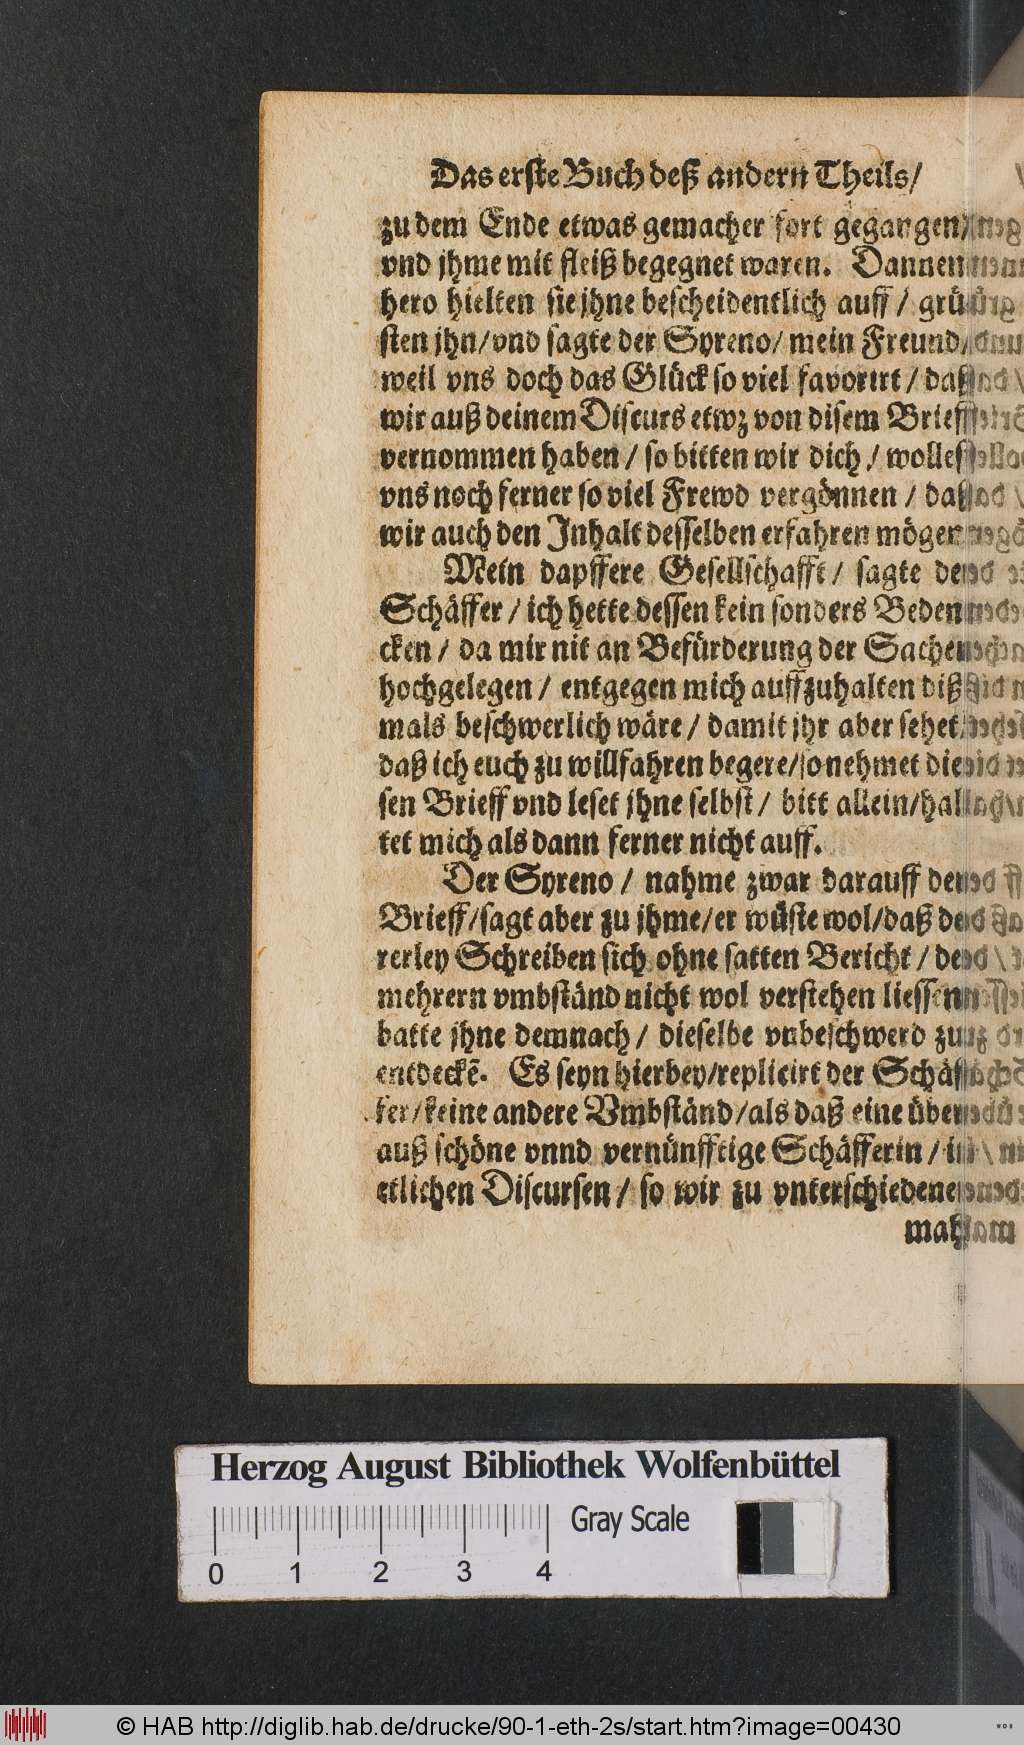 Das erste Buch deß andern Theils/
zu dem Ende etwas gemacher fort gegangen/
vnd jhme mit fleiß begegnet waren. Dannen
hero hielten sie jhne bescheidentlich auff / grü
sten jhn/vnd sagte der Syreno/ mein Freund/
weil vns doch das Glück so viel favorirt / daß
wir auß deinem Discurs etwz von disem Brieff
vernommen haben / so bitten wir dich / wollest
vns noch ferner so viel Frewd vergönnen / daß
wir auch den Inhalt desselben erfahren mögen
Mein dapffere Gesellschafft / sagte der
Schäffer / ich hette dessen kein sonders Beden
cken / da mir nit an Befürderung der Sachen
hochgelegen / entgegen mich auffzuhalten diß
mals beschwerlich wäre / damit jhr aber sehet/
daß ich euch zu willfahren begere/so nehmet die
sen Brieff vnd leset jhne selbst / bitt allein/hal
tet mich als dann ferner nicht auff.
Der Syreno / nahme zwar darauff den
Brieff/sagt aber zu jhme/er wüste wol/daß de
rerley Schreiben sich ohne satten Bericht / der
mehrern vmbständ nicht wol verstehen liessen
batte jhne demnach / dieselbe vnbeschwerd zu
entdeckē. Es seyn hierbey/replicirt der Schäf
fer/keine andere Vmbständ/als daß eine über
auß schöne vnnd vernünfftige Schäfferin / in
etlichen Discursen / so wir zu vnterschiedenen
mah
Herzog August Bibliothek Wolfenbüttel
Gray Scale
0 1 2 3 4
© HAB http://diglib.hab.de/drucke/90-1-eth-2s/start.htm?image=00430